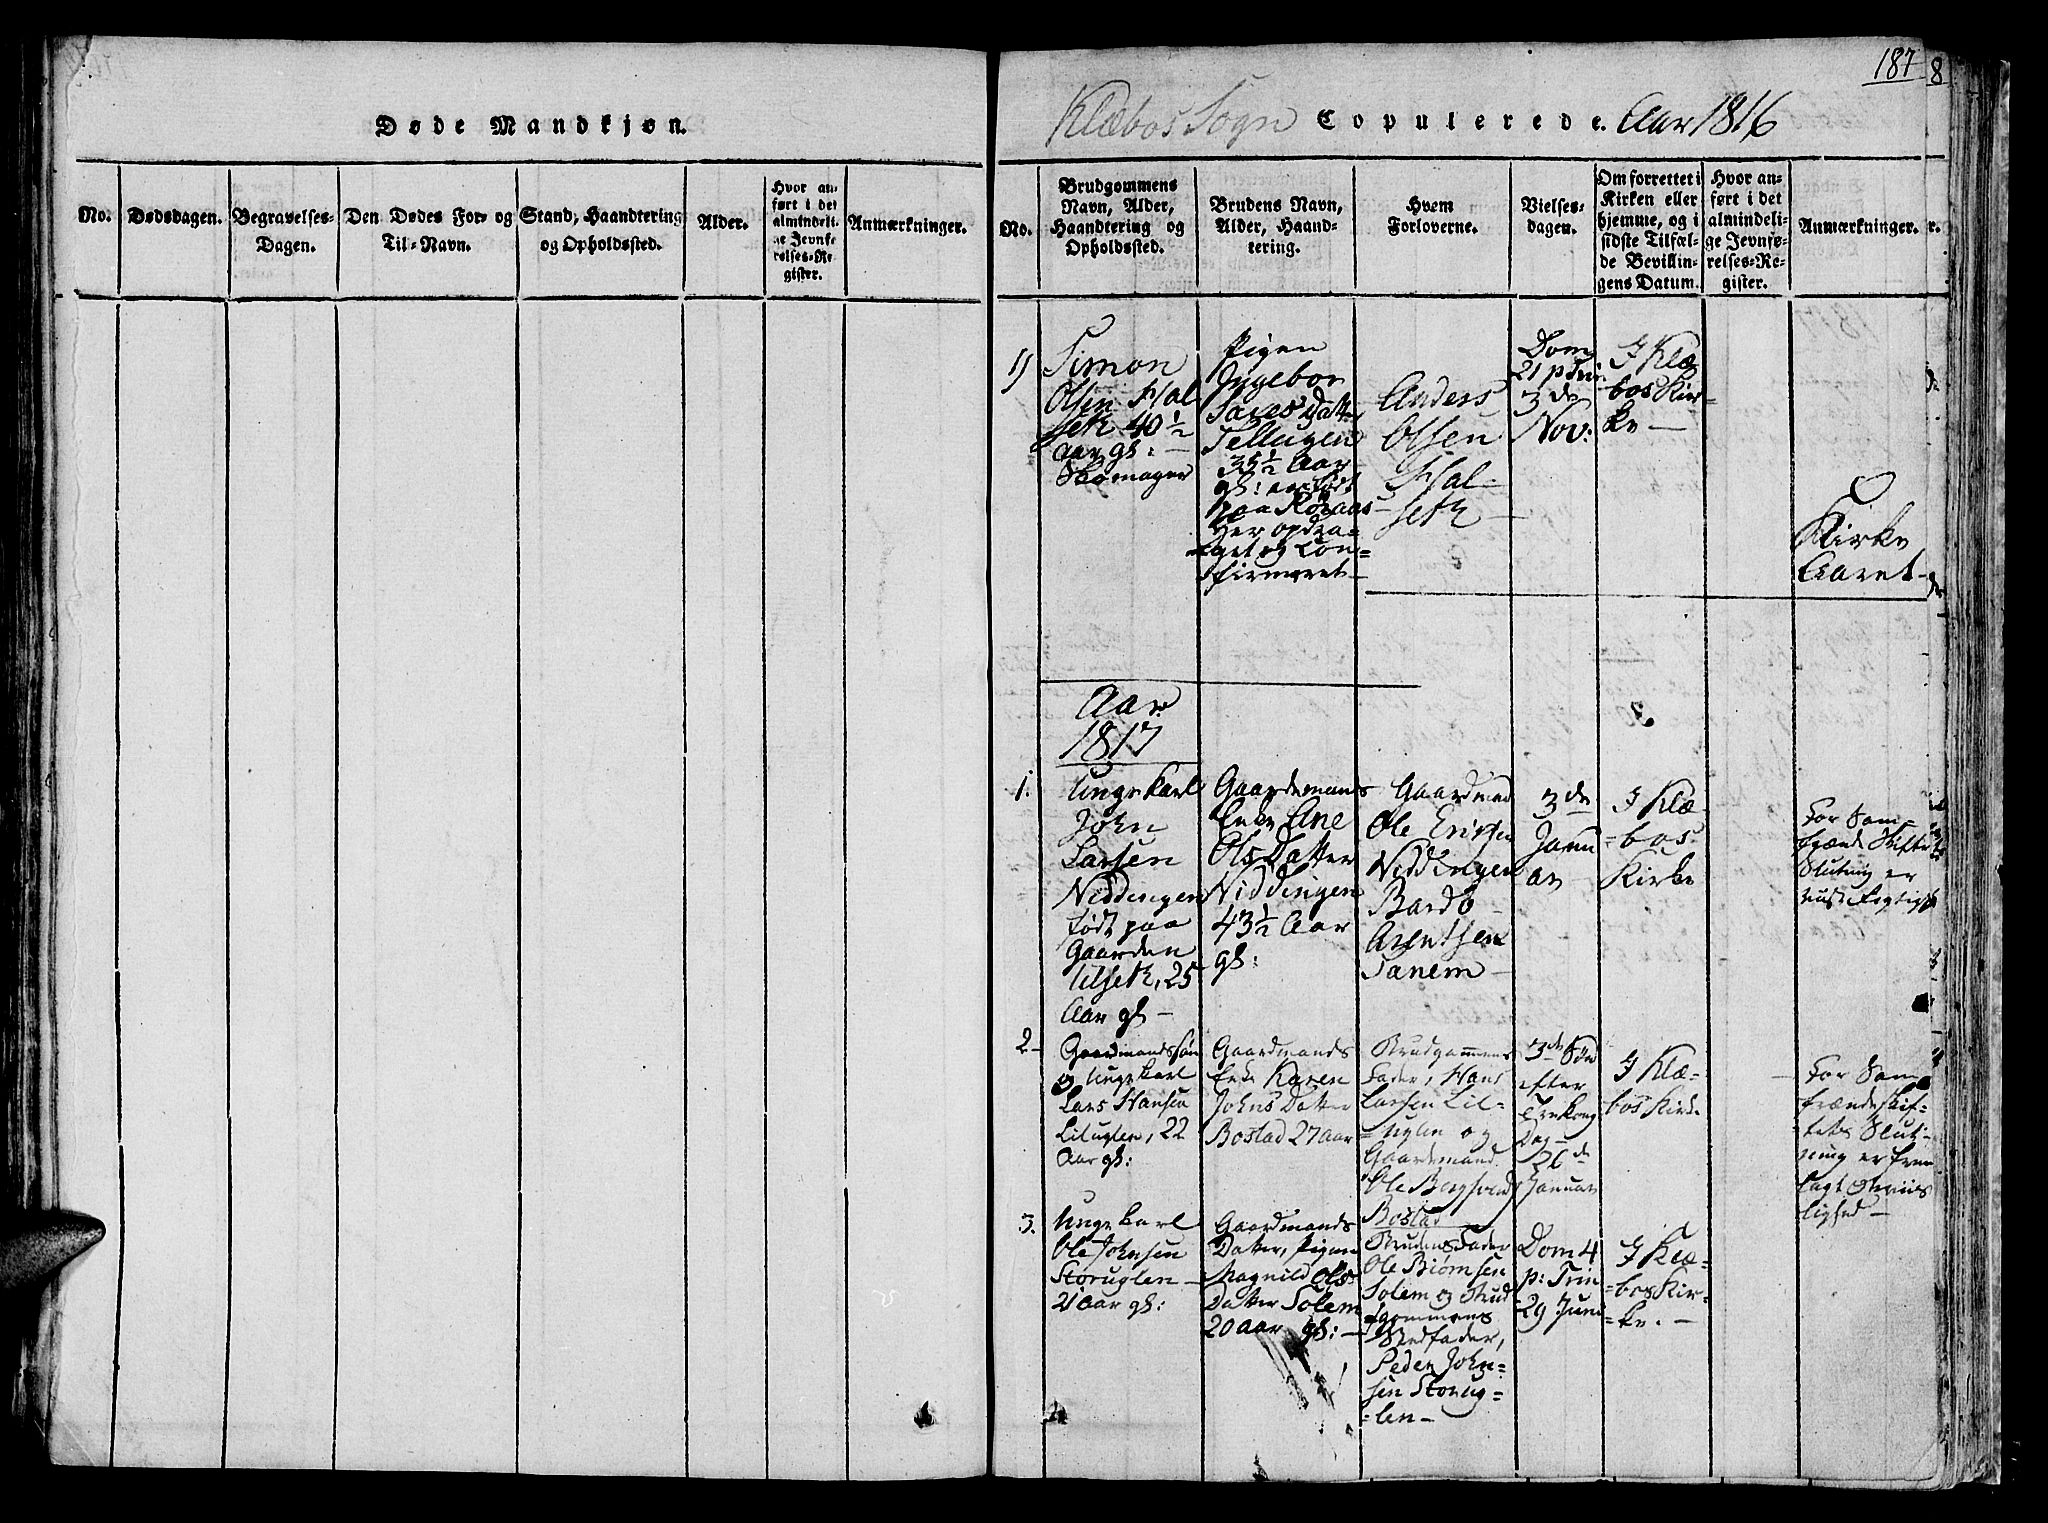 Døde Mandkjøn.
No.
Dødsdagen.
Begravelses-
Dagen.
Den Dødes For- og
Til-Navn.
Stand, Haandtering
og Opholdssted.
Alder.
Hvor an-
ført i det
almindeli-
ge Jevnfø-
relses-Re-
gister.
Anmærkninger.
187
8
Klæbos Sogn Copulerede. Aar 1816
No.
Brudgommens
Navn, Alder,
Haandtering og
Opholdssted.
Brudens Navn,
Alder, Haand-
tering.
Hvem
Forloverne.
Vielses-
dagen.
Om forrettet i
Kirken eller
hjemme, og i
sidste Tilfæl-
de Bevillin-
gens Datum.
Hvor an-
ført i det
almindeli-
ge Jevnfø-
relses-Re-
gister.
Anmærkninger.
r.
1)
Simon
Olsen Hal
seth 40 1/2
Aar gl: —
Skomager
Pigen
Ingebor
Saxes Datter
Tellugen
35 1/2 Aar
gl: er født
paa Røraas
Her opdra-
get og Con-
firmeret —
Anders
Olsen
Hal-
seth —
Dom
21 p Trin
3de
Nov:
I Klæ
bos Kir-
ke —
Kirke
Aaret
Aar
1817
1.
Ungekarl
John
Larsen
Niddingen
født paa
Gaarden
Ulseth, 25
Aar gl —
Gaardmands
Enke Ane
Ols Datter
Niddingen
43 1/2 Aar
gl:
Gaardmand
Ole Erichsen
Niddingen
Bardo
Arentsen
Tanem —
3de
Janu
ar —
I Klæ-
bos-
Kirke
For Sam-
frænde Skiftets
Slutning er
2-
Gaardmandssøn
og Ungekarl
Lars Hansen
Lituglen, 22
Aar gl:
Gaardmands
Enke Karen
Johns Datter
Bostad 27 aar
Brudgommens
Fader, Hans
Larsen Lit-
uglen og
Gaardmand
Ole Bersvends
Bostad
3de Søn
efter
Hre Kong
Dag —
26de
Januar
I Klæ-
bos Kirke
For Sam
frændeskif-
tets Slut-
ning er frem
lagt Skrivt-
lighed —
3.
Ungekarl
Ole Johnsen
Storuglen —
21 aar gl:
Gaardmands
Datter, Pigen
Magnild Ols
Datter Solem
20 aar gl: —
Brudens Fader
Ole Biørnsen
Solem og Brud
gommens
Stedfader,
Peder John-
sen Storug-
len —
Dom 4
p: Trin
29 Juni
I Klæ-
bos Kir-
ke. —